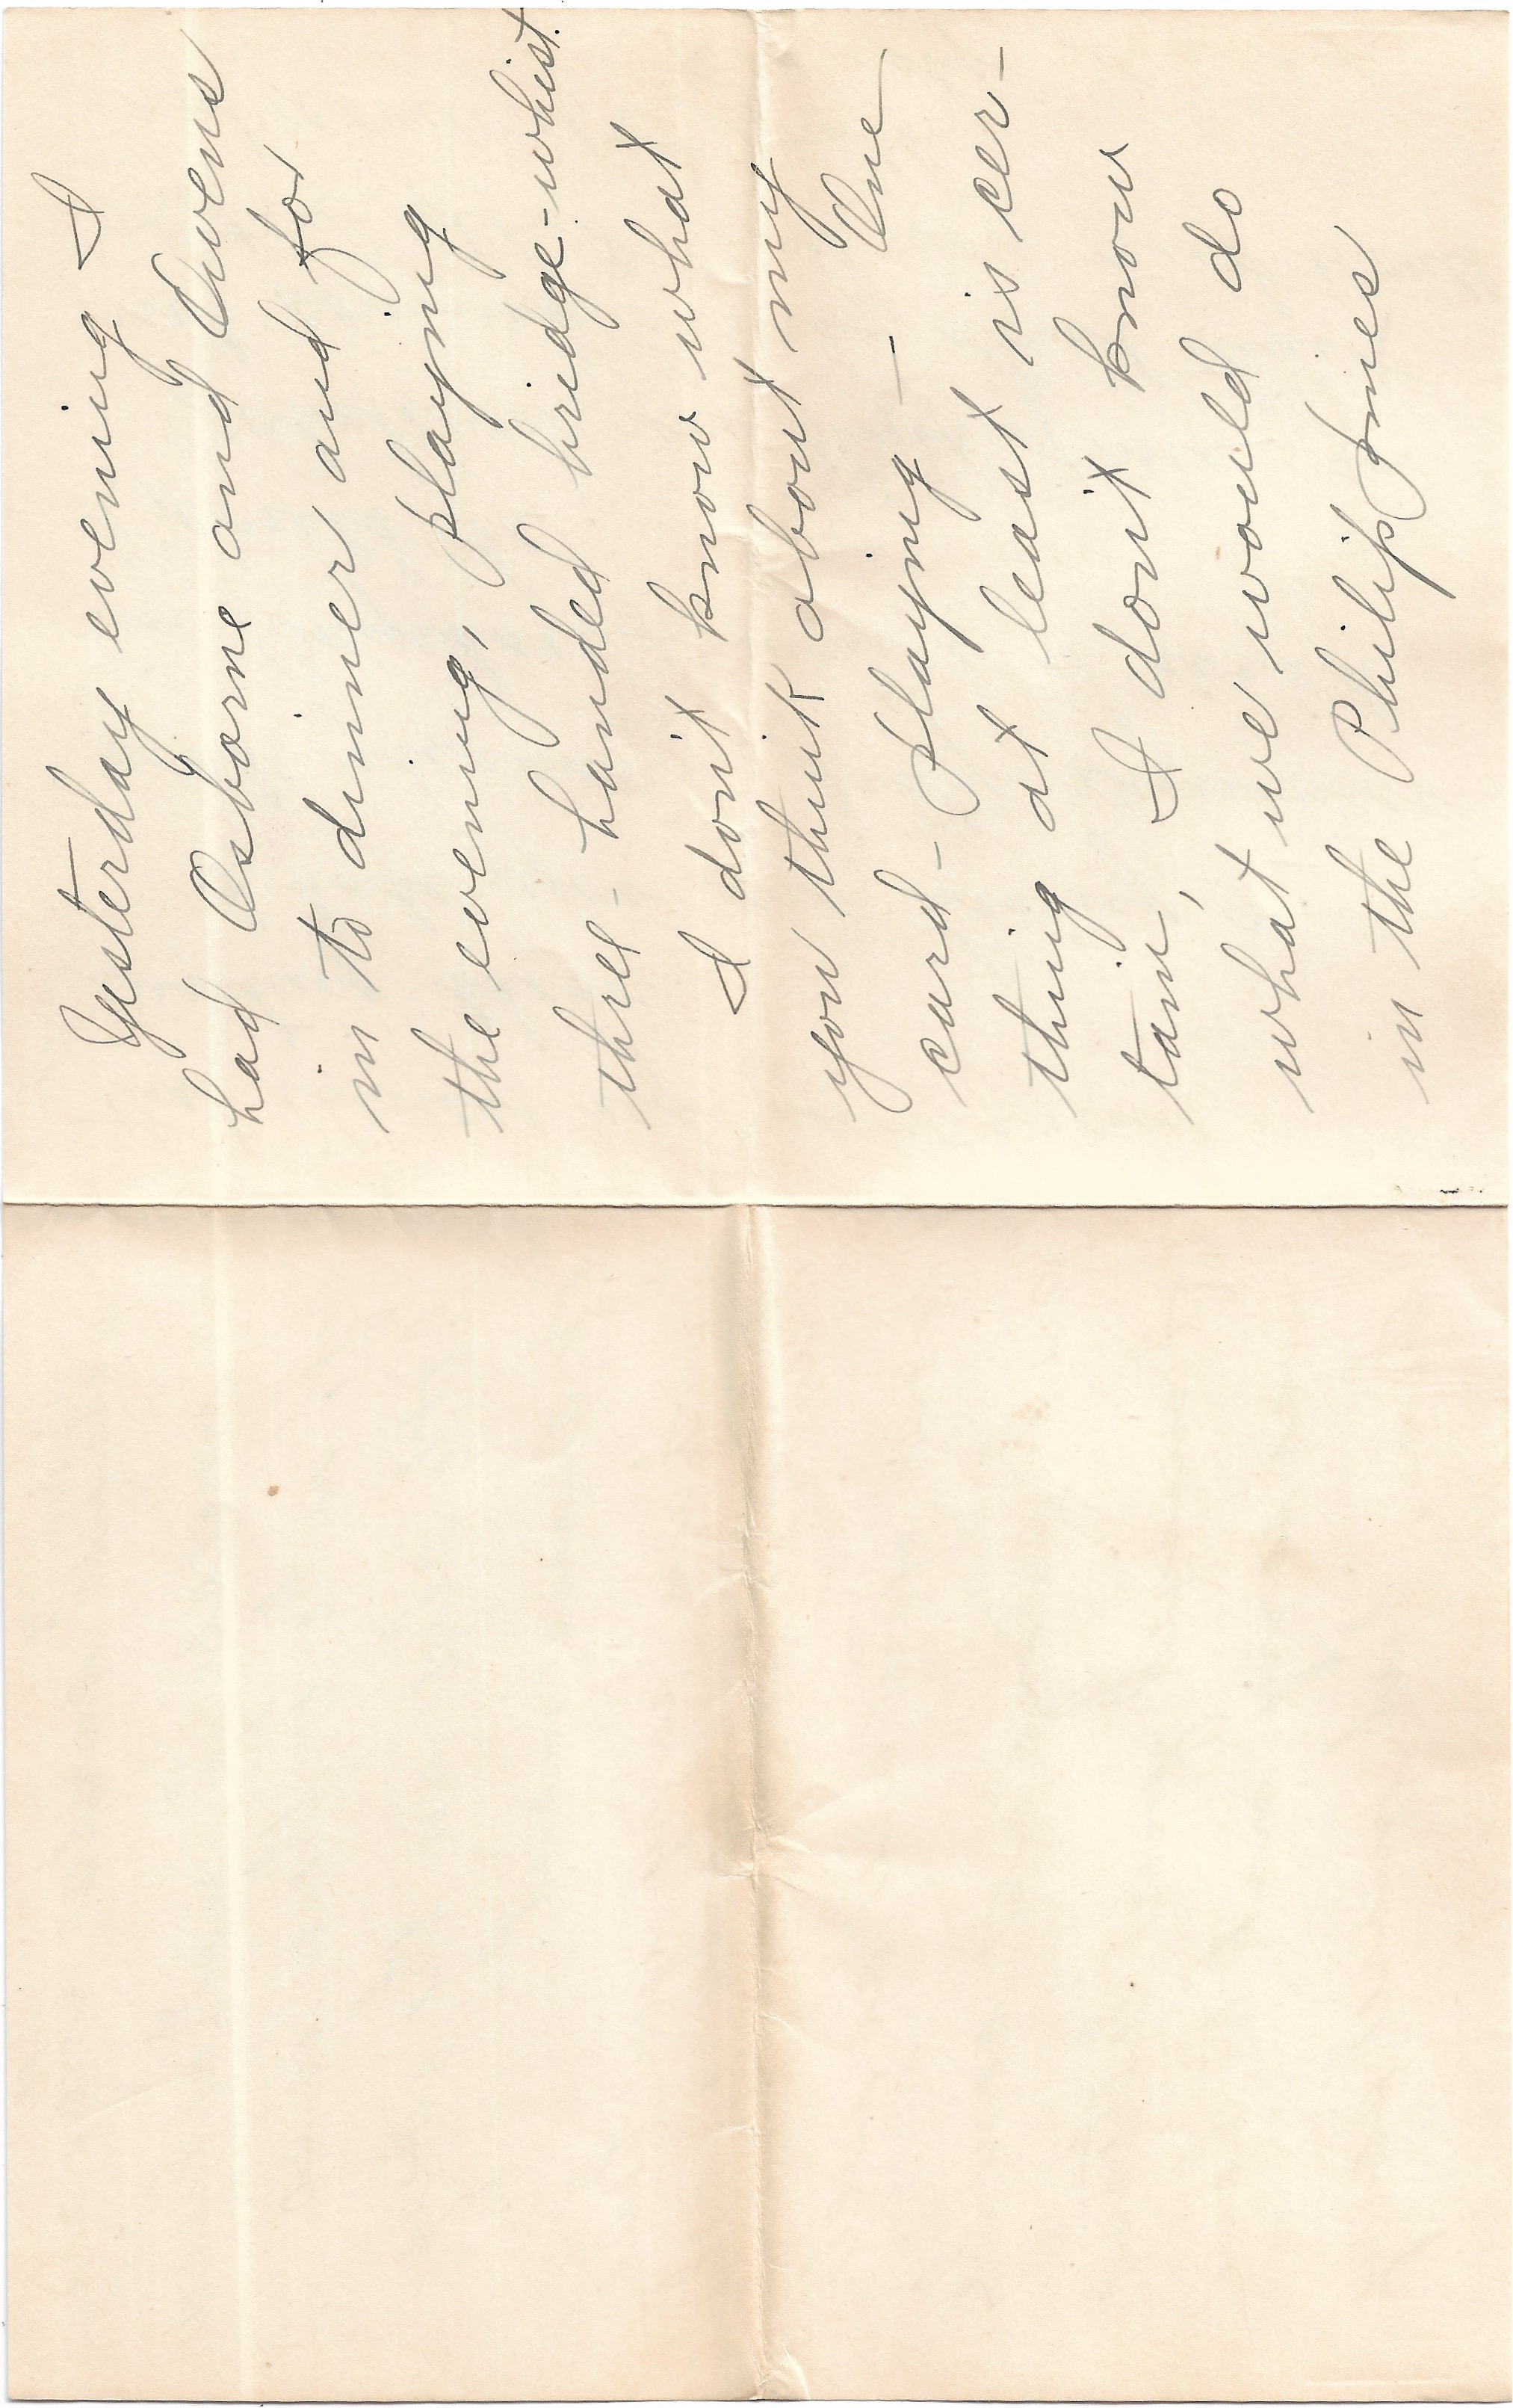 Yesterday evening I
had Osborne and Owens
in to dinner and for
the evening, playing
three-handed bridge-whist.
I don't know what
you think about my
card-playing — — One
thing at least is cer-
tain, I don't know
what we would do
in the Philippines